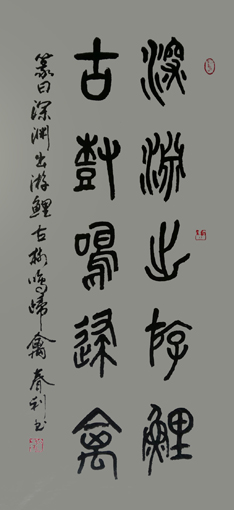 深渊出游鲤
古树鸣归禽
篆曰深渊出游鲤古树鸣归禽 春利书